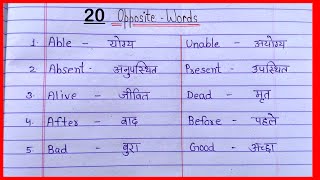 20 Opposite-Words
1. Able - योग्य Unable - अयोग्य
2. Absent - अनुपस्थित Present - उपस्थित
3. Alive - जीवित Dead - मृत
4. After - बाद Before - पहले
5. Bad - बुरा Good - अच्छा